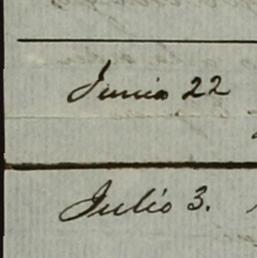 Junio 22
Julio 3.